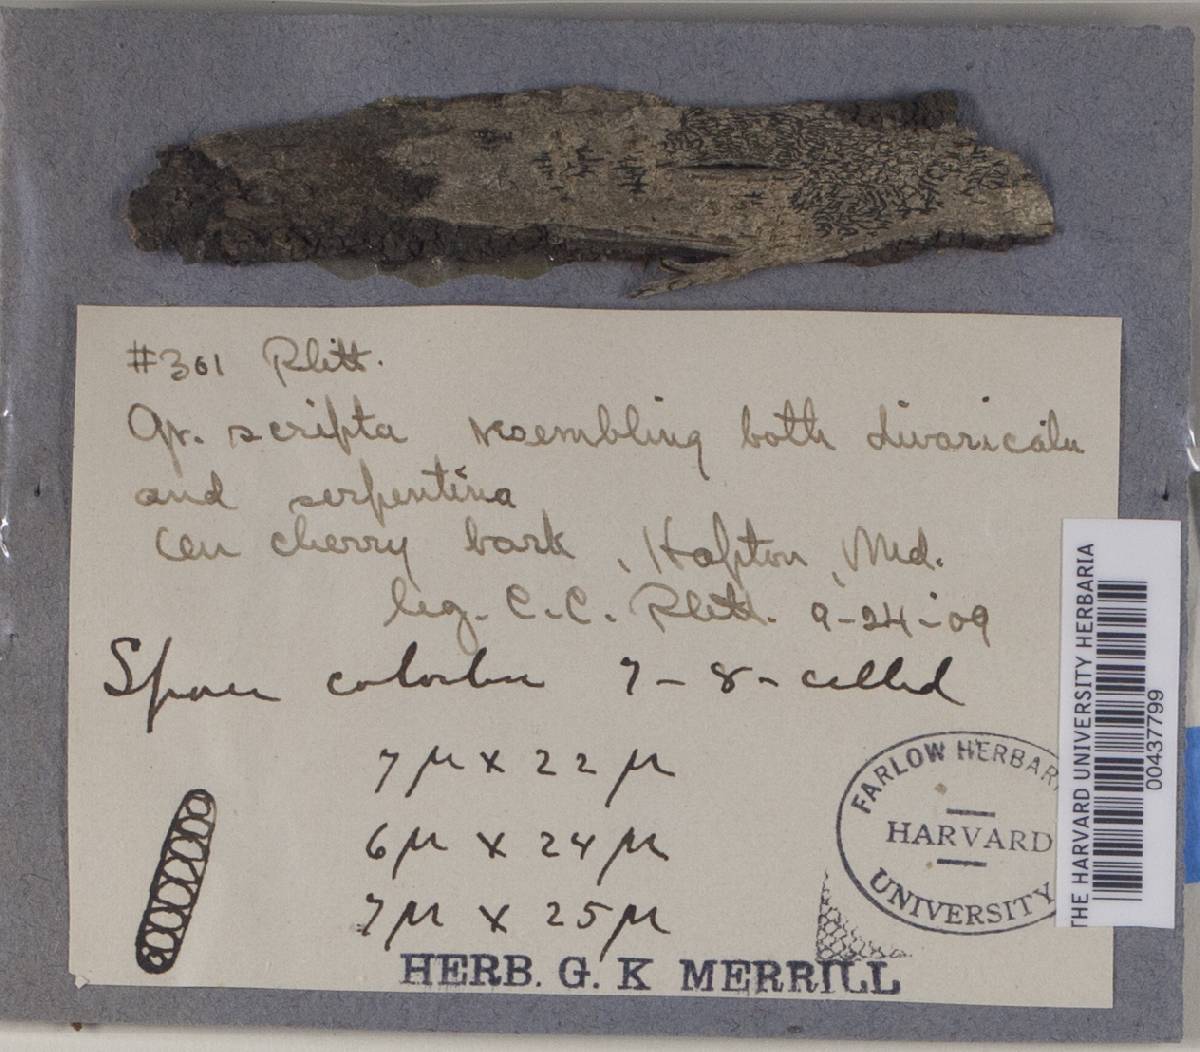 #301 Plitt.
Gr. scripta resembling both divaricata
and serpentina
On cherry bark, Halpton, Md.
leg. C. C. Plitt. 9-24-09
Spores colorless 7-8-celled
7 µ x 22 µ
6 µ x 24 µ
7 µ x 25 µ
FARLOW HERBARI
HARVARD
UNIVERSITY
HERB. G. K MERRILL
THE HARVARD UNIVERSITY HERBARIA
00437799